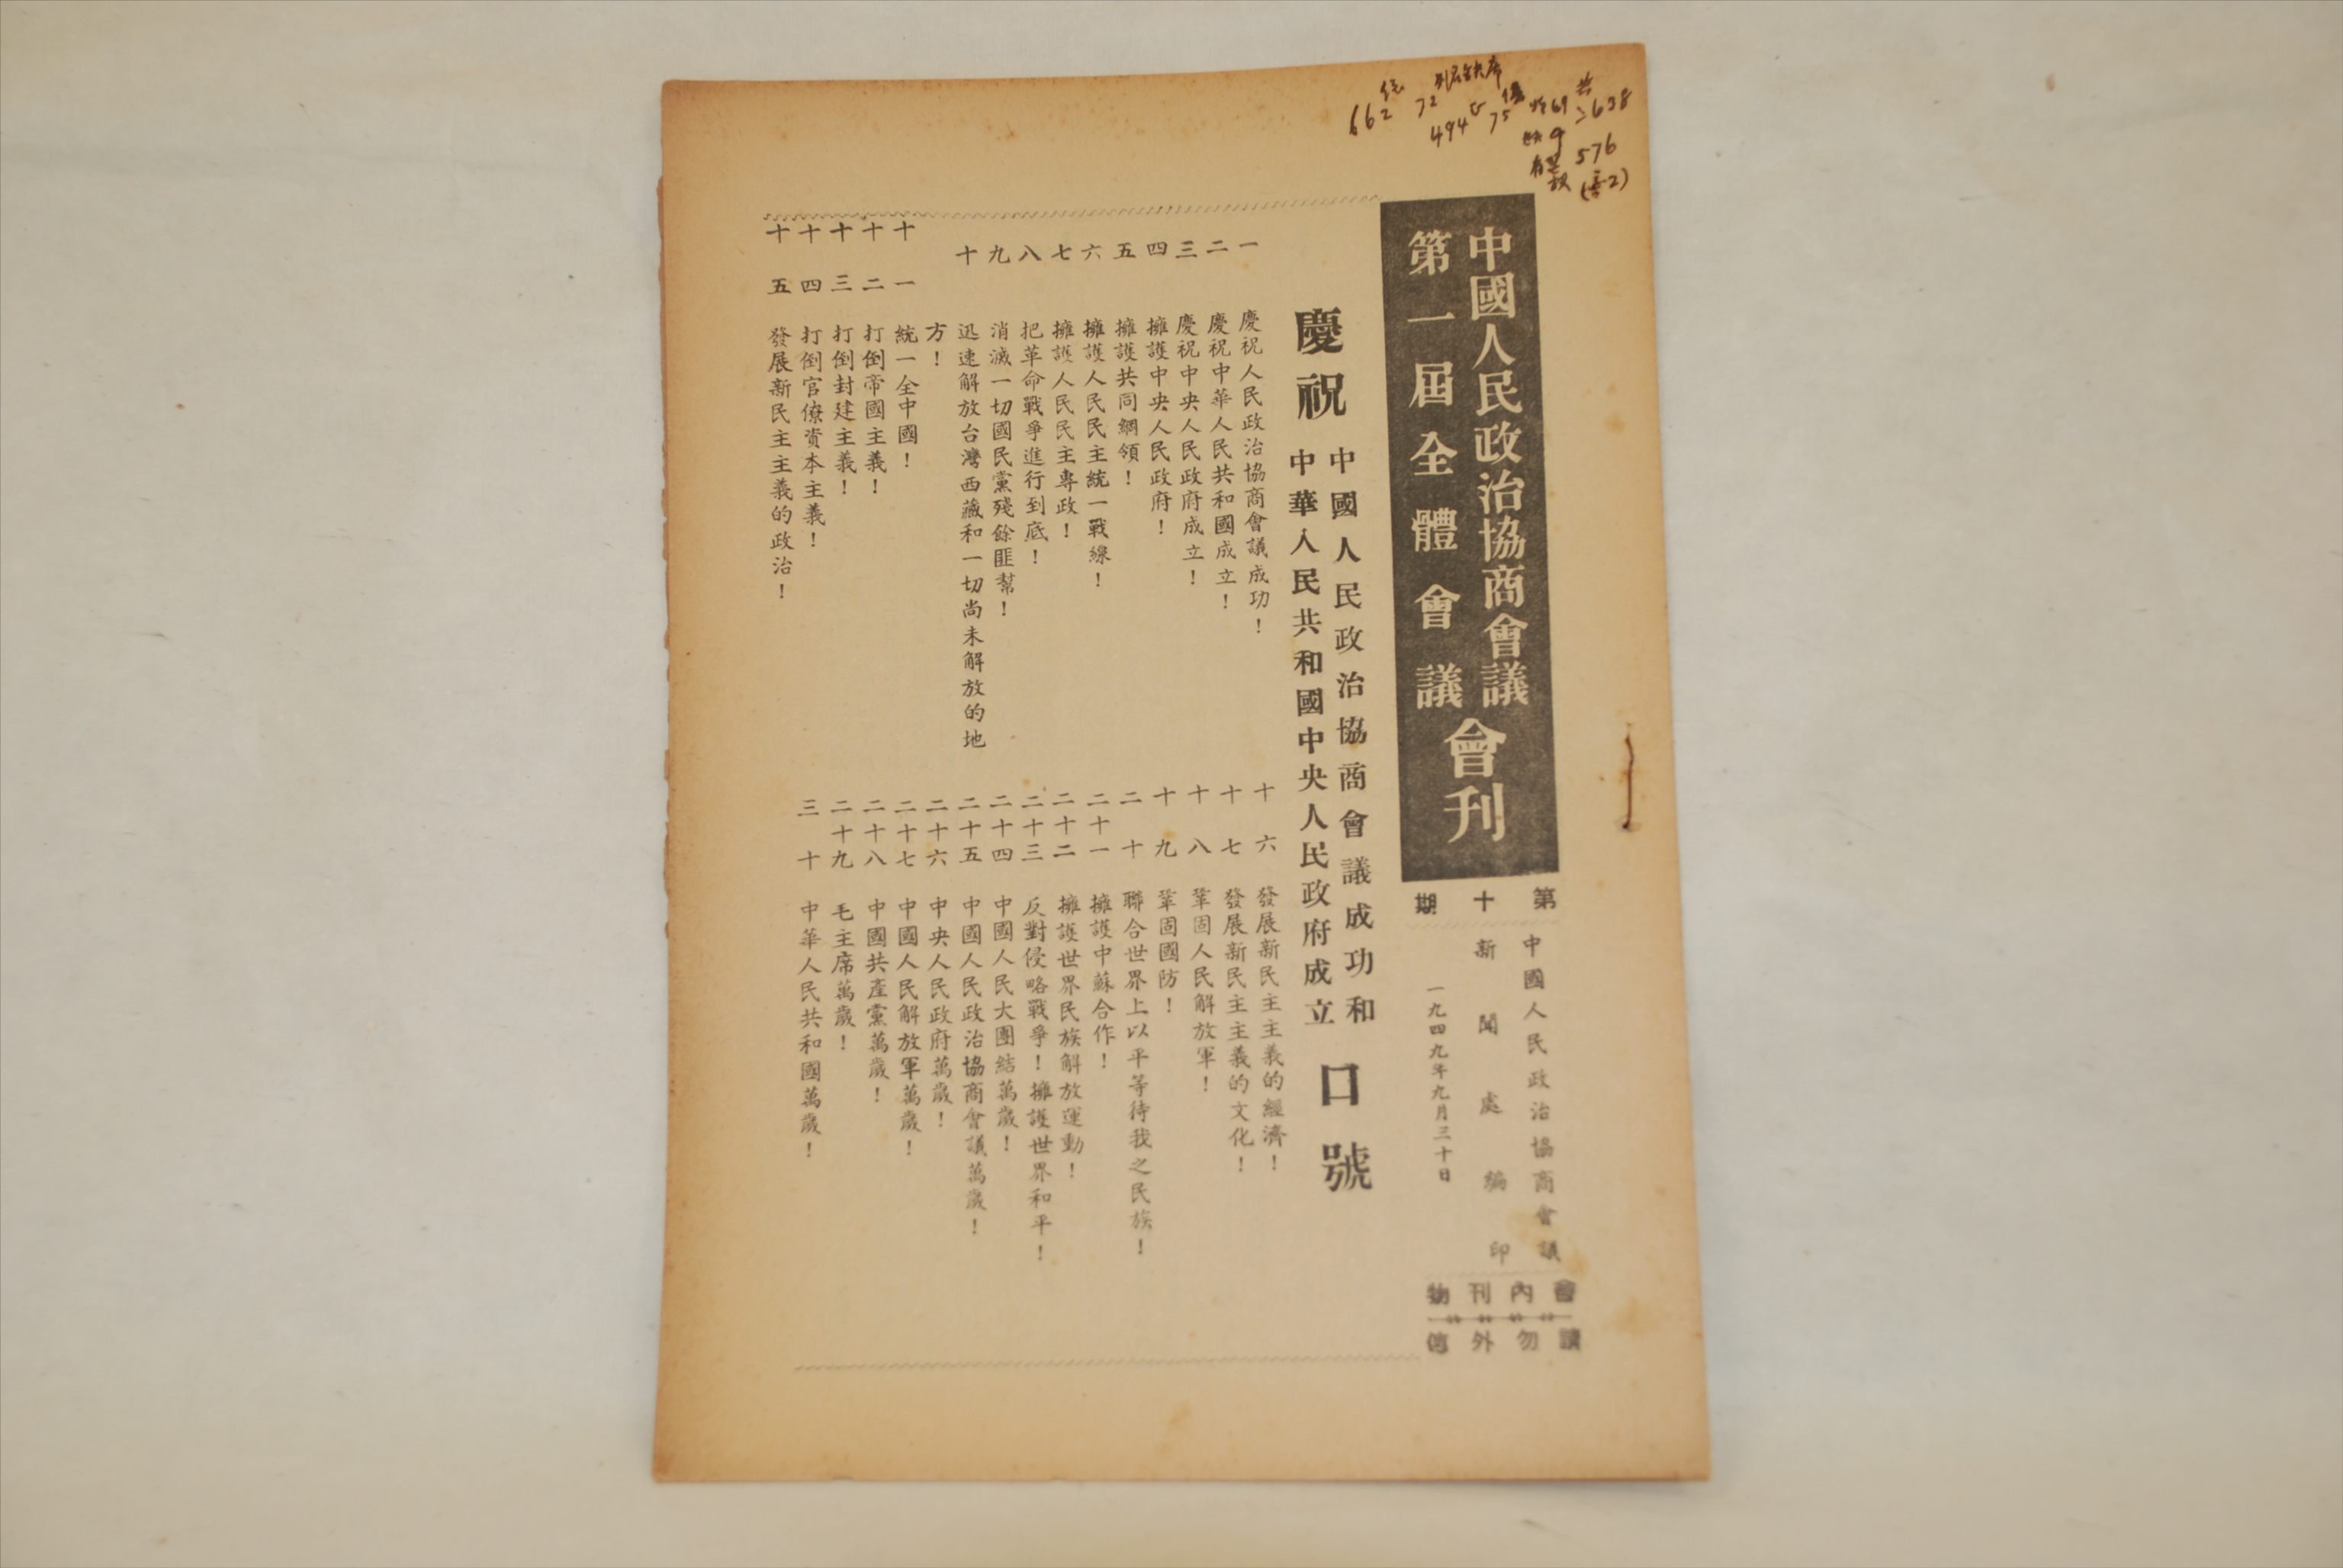 中國人民政治協商會議
第一屆全體會議
會刊
第十期
中國人民政治協商會議
新聞處編印
一九四九年九月三十日
會內刊物
請勿外傳
慶祝
中國人民政治協商會議成功和
中華人民共和國中央人民政府成立
口號
一 慶祝人民政治協商會議成功!
二 慶祝中華人民共和國成立!
三 慶祝中央人民政府成立!
四 擁護中央人民政府!
五 擁護共同綱領!
六 擁護人民民主統一戰線!
七 擁護人民民主專政!
八 把革命戰爭進行到底!
九 消滅一切國民黨殘餘匪幫!
十 迅速解放台灣西藏和一切尚未解放的地
方!
十一 統一全中國!
十二 打倒帝國主義!
十三 打倒封建主義!
十四 打倒官僚資本主義!
十五 發展新民主主義的政治!
十六 發展新民主主義的經濟!
十七 發展新民主主義的文化!
十八 鞏固人民解放軍!
十九 鞏固國防!
二十 聯合世界上以平等待我之民族!
二十一 擁護中蘇合作!
二十二 擁護世界民族解放運動!
二十三 反對侵略戰爭!擁護世界和平!
二十四 中國人民大團結萬歲!
二十五 中國人民政治協商會議萬歲!
二十六 中央人民政府萬歲!
二十七 中國人民解放軍萬歲!
二十八 中國共產黨萬歲!
二十九 毛主席萬歲!
三十 中華人民共和國萬歲!
662
72
494
75
69
共
638
9
576